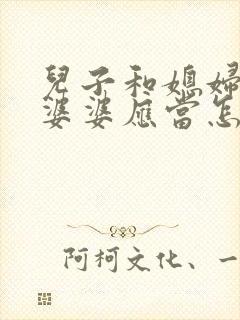 兒子和媳婦
婆婆應當怎
阿柯文化、一